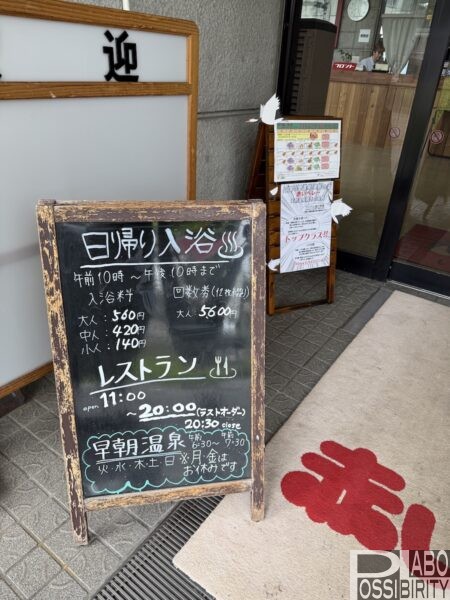 迎
フロント
トップクラス!!
日帰り入浴
午前10時～午後10時まで
入浴料 回数券(12枚綴り)
大人:560円 大人:5600円
中人:420円
小人:140円
レストラン
open 11:00
～20:00(ラストオーダー)
20:30 close
早朝温泉 午前6:30～午前7:30
火・水・木・土・日 ※月・金はお休みです
LABO
POSSIBIRITY